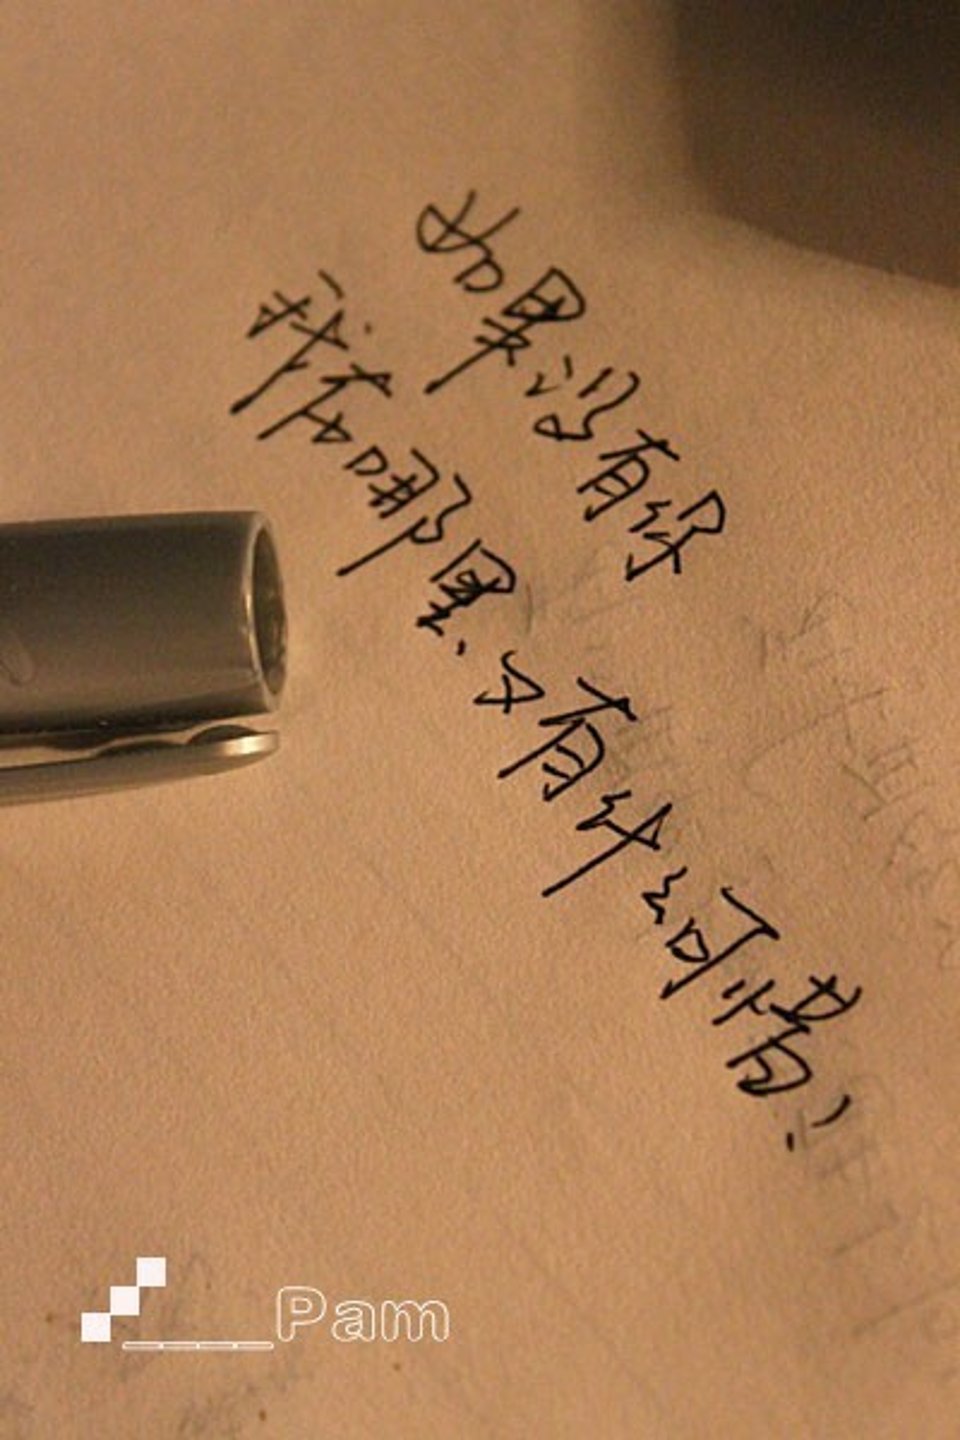 如果没有你
我在哪里.又有什么可惜!
____Pam